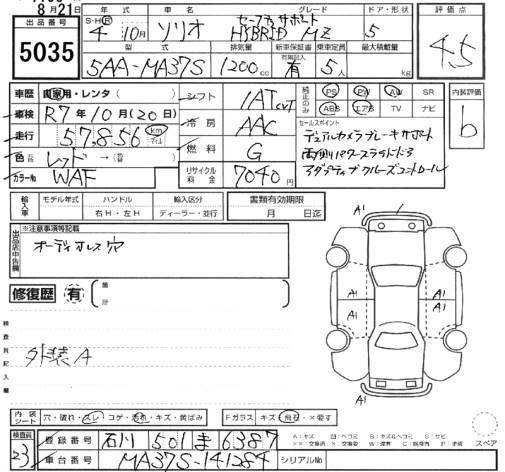 8月21日
出品番号
5035
年式 車名 グレード ドア・形状
S・H・R 4年 10月 ソリオ セーフティサポート HYBRID MZ 5
型式 排気量 新車保証書 乗車定員 最大積載量
5AA-MA37S 1200cc 有 5人 kg
評価点
4.5
車歴 自家用・レンタ( )
車検 R7年10月(20日)
走行 57,856 km マイル
色 レッド→ (替色 )
カラーNo. WAF
シフト IAT CVT
冷房 AAC
燃料 G
リサイクル料金 7040円
純正のみ PS PW AW SR
ABS エアB TV ナビ
セールスポイント
デュアルカメラブレーキサポート
両側パワースライドドア
アダプティブクルーズコントロール
内装評価
b
輸入車 モデル年式 ハンドル 輸入区分
右H・左H ディーラー・並行
書類有効期限
月 日迄
出品店申告欄
※注意事項等記載
オーディオレス穴
修復歴 有
箇所
検査員記入欄
外装A
A1
A1 A1
A1 A1
内装シート 穴・破れ・スレ・コゲ・汚れ・キズ・黄ばみ
Fガラス キズ・飛石・×要す
スペア
検査員 23
登録番号 石川 501 ま 6387
車台番号 MA37S-141284 シリアルNo.